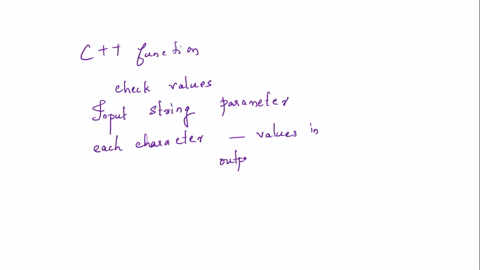 C++ function
check values
Input string parameter
each character — values in
outp